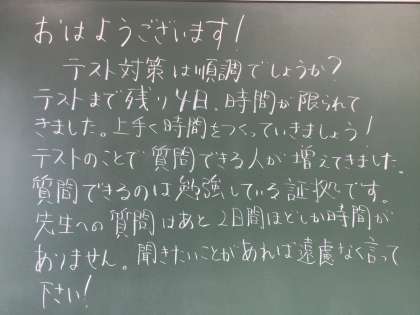 おはようございます!
テスト対策は順調でしょうか?
テストまで残り4日、時間が限られて
きました。上手く時間をつくっていきましょう!
テストのことで質問できる人が増えてきました。
質問できるのは勉強している証拠です。
先生への質問はあと2日間ほどしか時間が
ありません。聞きたいことがあれば遠慮なく言って
下さい!